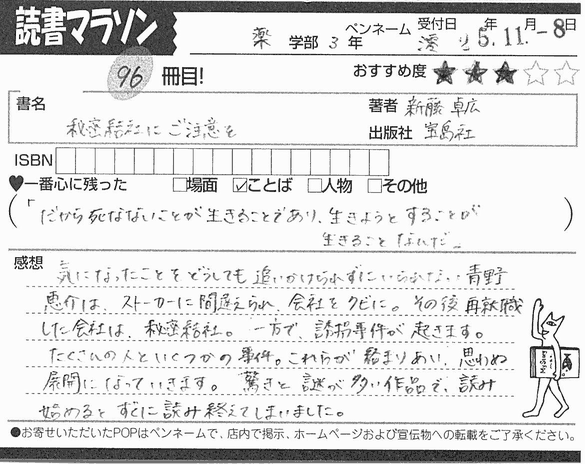 読書マラソン
薬 学部 3 年 ペンネーム 湊 受付日 年 月 日
り5.11.-8
96 冊目!
おすすめ度 ★★★☆☆
書名
秘密結社にご注意を
著者 新藤 卓広
出版社 宝島社
ISBN
♥一番心に残った □場面 ☑ことば □人物 □その他
「だから死なないことが生きることであり、生きようとすることが
生きることなんだ」
感想
気になったことをどうしても追いかけられずにいられない青野
恵介は、ストーカーに間違えられ、会社をクビに。その後再就職
した会社は、秘密結社。一方で、誘拐事件が起きます。
たくさんの人といくつかの事件。これらが絡まりあい、思わぬ
展開になっていきます。驚きと謎が多い作品で、読み
始めるとすぐに読み終えてしまいました。
●お寄せいただいたPOPはペンネームで、店内で掲示、ホームページおよび宣伝物への転載をご了承ください。